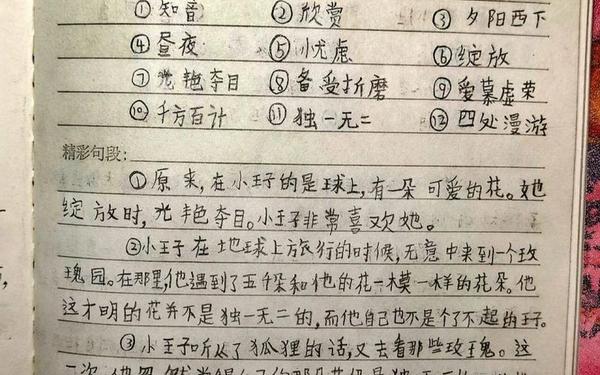 ①知音 ②欣赏 ③夕阳西下
④昼夜 ⑤忧虑 ⑥绽放
⑦光艳夺目 ⑧备受折磨 ⑨爱慕虚荣
⑩千方百计 ⑪独一无二 ⑫四处漫游
精彩句段:
①原来,在小王子的是球上,有一朵可爱的花。她
绽放时,光艳夺目。小王子非常喜欢她。
②小王子在地球上旅行的时候,无意中来到一个玫
瑰园。在那里,他遇到了五千朵和他的花一模一样的花朵。他
这才明的花并不是独一无二的,而他自己也不是个了不起的王子。
③小王子听从了狐狸的话,又去看那些玫瑰。这